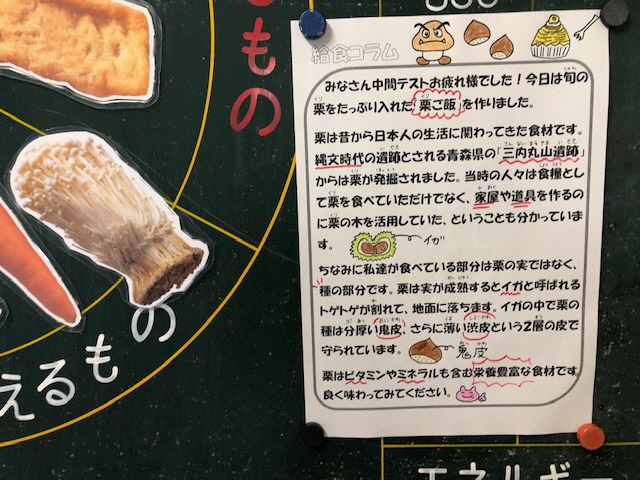 もの
のえるもの
エネルギー
給食コラム
みなさん中間テストお疲れ様でした！今日は旬の
栗をたっぷり入れた「栗ご飯」を作りました。
栗は昔から日本人の生活に関わってきた食材です。
縄文時代の遺跡とされる青森県の「三内丸山遺跡」
からは栗が発掘されました。当時の人々は食糧とし
て栗を食べていただけでなく、家屋や道具を作るの
に栗の木を活用していた、ということも分かっていま
す。
イガ
ちなみに私達が食べている部分は栗の実ではなく、
種の部分です。栗は実が成熟するとイガと呼ばれる
トゲトゲが割れて、地面に落ちます。イガの中で栗の
種は分厚い鬼皮、さらに薄い渋皮という2層の皮で
守られています。
鬼皮
栗はビタミンやミネラルも含む栄養豊富な食材です。
良く味わってみてください。